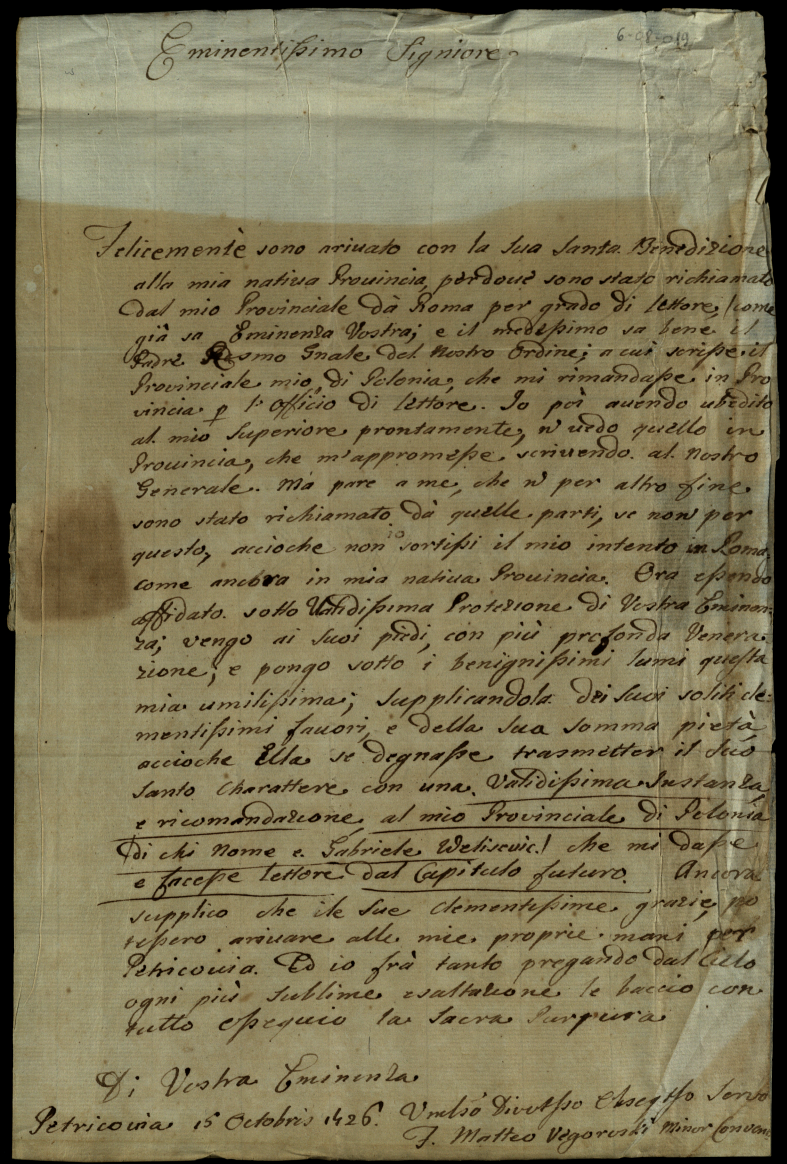 Eminentissimo Signiore
6-08-019
Felicementè sono ariuato con la sua santa Benedizione
alla mia natiua Prouincia, perdoue sono stato richiamato
dal mio Provinciale dà Roma per grado di lettore, /come
già sa Eminenza Vostra; e il medessimo sa bene il
Padre Rssmo Gnale del Nostro Ordine; a cui scrisse il
Provinciale mio di Polonia, che mi rimandasse in Pro
vincia p l'Officio di lettore. Io poi auendo ubedito
al mio Superiore prontamente, ñ uedo quello in
Prouincia, che m'appromesse scriuendo al Nostro
Generale. Mà pare a me, che ñ per altro fine
sono stato richiamato dà quelle parti, se non per
questo, accioche non io sortissi il mio intento in Roma,
come ancora in mia natiua Prouincia. Ora essendo
affidato sotto Validissima Protezione di Vostra Eminen
za; vengo ai suoi piedi, con più profonda Venera
zione, e pongo sotto i benignissimi lumi questa
mia umilissima; supplicandola dei suoi soliti cle
mentissimi fauori, e della sua somma pietà,
accioche Ella se degnasse trasmetter il suo
santo Charattere con una Validissima Instanza,
e ricomandazione al mio Provinciale di Polonia
/di chi nome e Gabriele Weliscvic/ che mi dasse
e facesse lettore dal Capitulo futuro. Ancora
supplico che le sue clementissime grazie po
tessero ariuare alle mie proprie mani per
Petricouia. Ed io frà tanto pregando dal Cielo
ogni più sublime esaltazione le baccio con
tutto essequio la Sacra Purpura
Di Vostra Eminenza
Petricouia 15 Octobris 1726. Umilsso Divotsso Obseqtsso Servo
F. Matteo Vegorouski Minor Conven